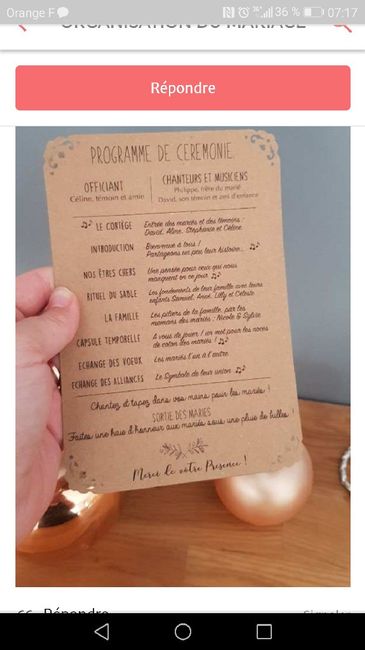 Orange F 36 % 07:17
ORGANISATION DU MARIAGE
Répondre
PROGRAMME DE CEREMONIE
OFFICIANT
Céline, témoin et amie
CHANTEURS ET MUSICIENS
Philippe, frère du marié
David, son témoin et ami d'enfance
LE CORTÈGE Entrée des mariés et des témoins :
David, Aline, Stéphanie et Céline
INTRODUCTION Bienvenue à tous !
Partageons un peu leur histoire...
NOS ÊTRES CHERS Une pensée pour ceux qui nous
manquent en ce jour
RITUEL DU SABLE Les fondements de leur famille avec leurs
enfants Samuel, Lilly et Céleste
LA FAMILLE Les piliers de la famille, par les
mamans des mariés : Nicole & Sylvie
CAPSULE TEMPORELLE A vous de jouer ! un mot pour les noces
de coton des mariés !
ECHANGE DES VOEUX Les mariés l'un à l'autre
ECHANGE DES ALLIANCES Le Symbole de leur union
Chantez et tapez dans vos mains pour les mariés !
SORTIE DES MARIES
Faites une haie d'honneur aux mariés sous une pluie de bulles !
Merci de votre Présence !
Répondre Signaler